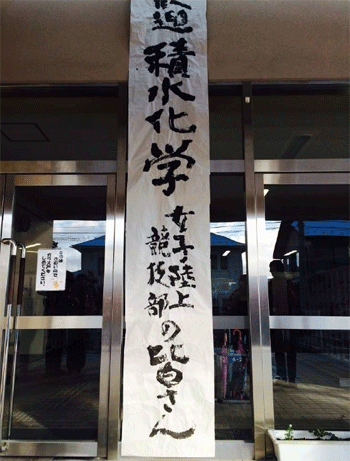 迎 積水化学
女子陸上
競技部
の皆さん